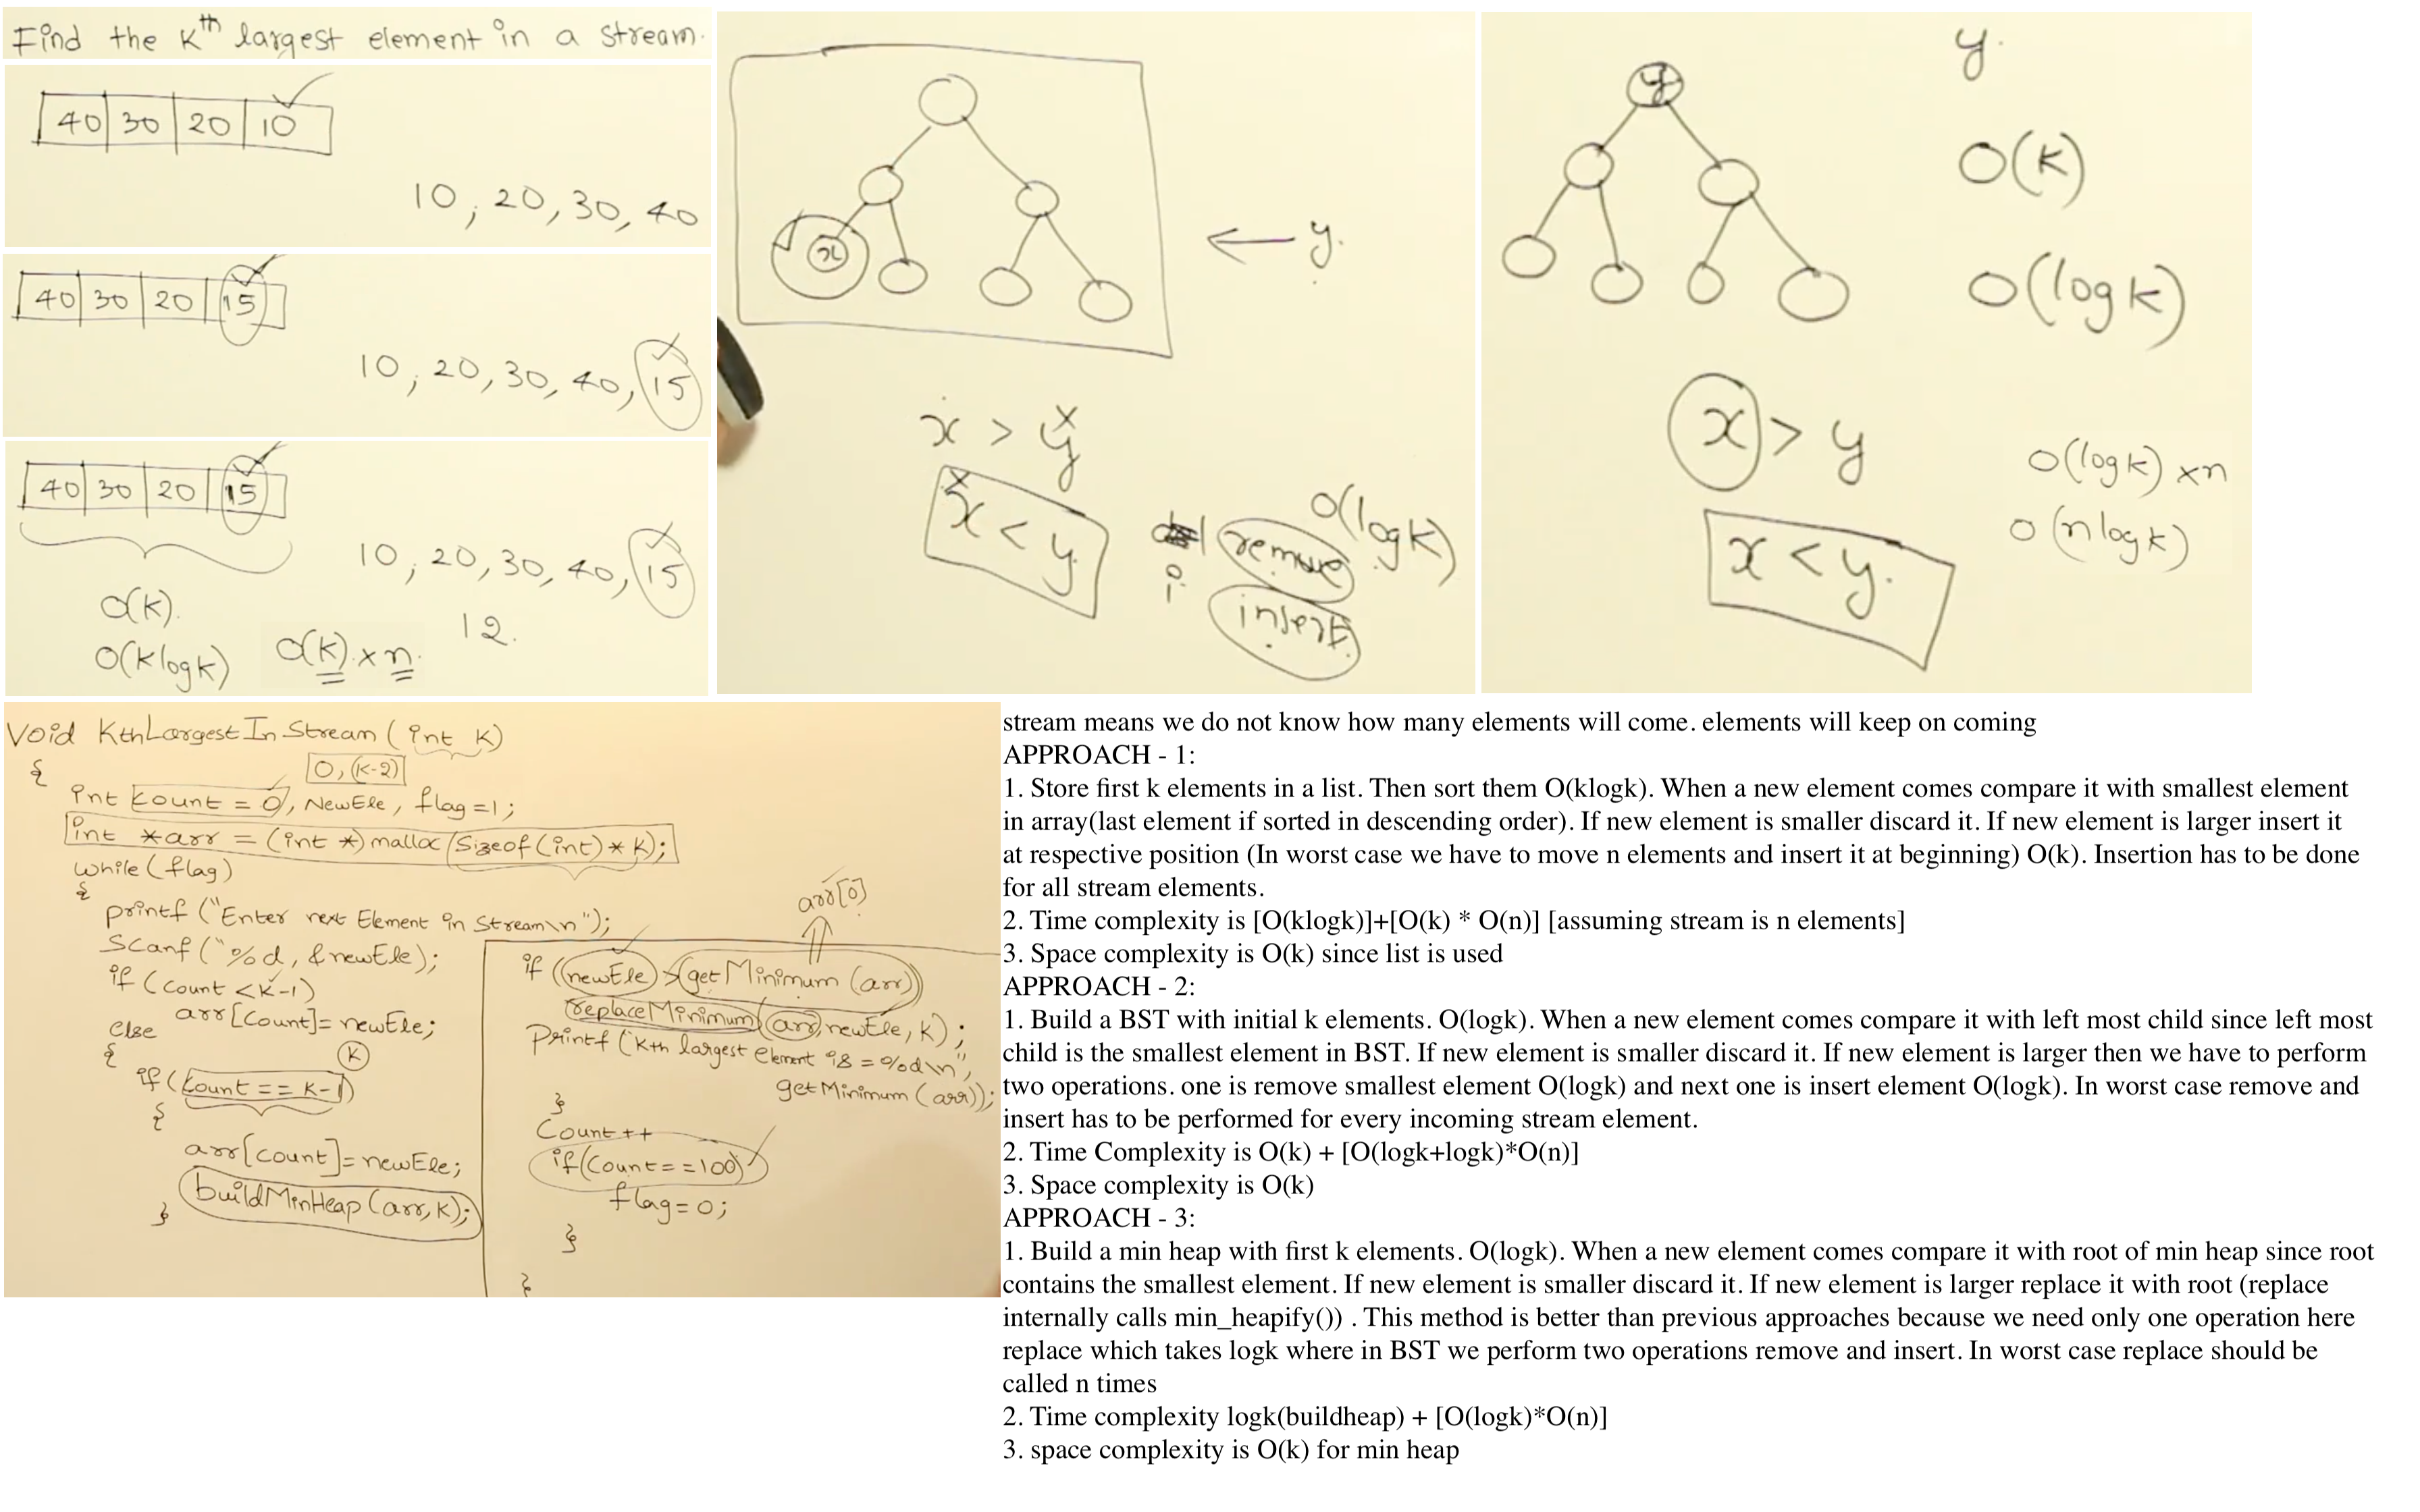 Find the Kth largest element in a stream.
40 30 20 10
10, 20, 30, 40
40 30 20 15
10, 20, 30, 40, 15
40 30 20 15
10, 20, 30, 40, 15
O(K).
12.
O(KlogK) O(K) x n.
x
← y.
x > y
x < y
remove O(logK)
i
insert
y.
y
O(K)
O(logK)
x > y
O(logK) x n
O(nlogK)
x < y.
Void KthLargestInStream (int K)
{
0, (K-2)
int count = 0, NewEle, flag=1;
int *arr = (int *) malloc (Sizeof(int) * K);
while (flag)
{
printf ("Enter next Element in Stream\n");
Scanf ("%d, &newEle);
if (count < K-1)
arr[count]= newEle;
else
{
K
if (count == K-1)
{
arr[count]= newEle;
buildMinHeap (arr, K);
}
arr[0]
if (newEle > getMinimum (arr))
replaceMinimum (arr, newEle, K);
Printf ("Kth largest element is = %d\n",
getMinimum (arr));
}
Count++
if (Count==100)
flag=0;
}
}
stream means we do not know how many elements will come. elements will keep on coming
APPROACH - 1:
1. Store first k elements in a list. Then sort them O(klogk). When a new element comes compare it with smallest element
in array(last element if sorted in descending order). If new element is smaller discard it. If new element is larger insert it
at respective position (In worst case we have to move n elements and insert it at beginning) O(k). Insertion has to be done
for all stream elements.
2. Time complexity is [O(klogk)]+[O(k) * O(n)] [assuming stream is n elements]
3. Space complexity is O(k) since list is used
APPROACH - 2:
1. Build a BST with initial k elements. O(logk). When a new element comes compare it with left most child since left most
child is the smallest element in BST. If new element is smaller discard it. If new element is larger then we have to perform
two operations. one is remove smallest element O(logk) and next one is insert element O(logk). In worst case remove and
insert has to be performed for every incoming stream element.
2. Time Complexity is O(k) + [O(logk+logk)*O(n)]
3. Space complexity is O(k)
APPROACH - 3:
1. Build a min heap with first k elements. O(logk). When a new element comes compare it with root of min heap since root
contains the smallest element. If new element is smaller discard it. If new element is larger replace it with root (replace
internally calls min_heapify()) . This method is better than previous approaches because we need only one operation here
replace which takes logk where in BST we perform two operations remove and insert. In worst case replace should be
called n times
2. Time complexity logk(buildheap) + [O(logk)*O(n)]
3. space complexity is O(k) for min heap